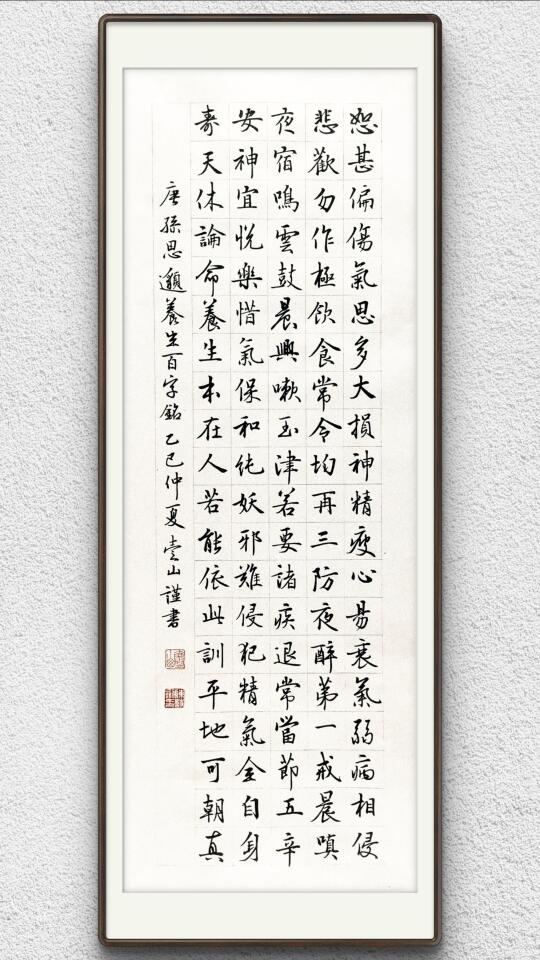 怒甚偏傷氣思多大損神精疲心易衰氣弱病相侵
悲歡勿作極飲食常令均再三防夜醉第一戒晨嗔
夜宿鳴雲鼓晨興嗽玉津若要諸疾退常當節五辛
安神宜悅樂惜氣保和純妖邪難侵犯精氣全自身
壽天休論命養生本在人若能依此訓平地可朝真
唐孫思邈養生百字銘乙巳仲夏壹山謹書